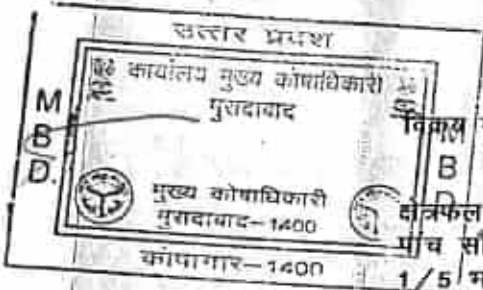 उत्तर प्रदेश
कार्यालय मुख्य कोषाधिकारी
मुरादाबाद
M
B
D.
मुख्य कोषाधिकारी
मुरादाबाद-1400
कोषागार-1400
विक्रय
B
क्षेत्रफल
पांच सौ
1/5